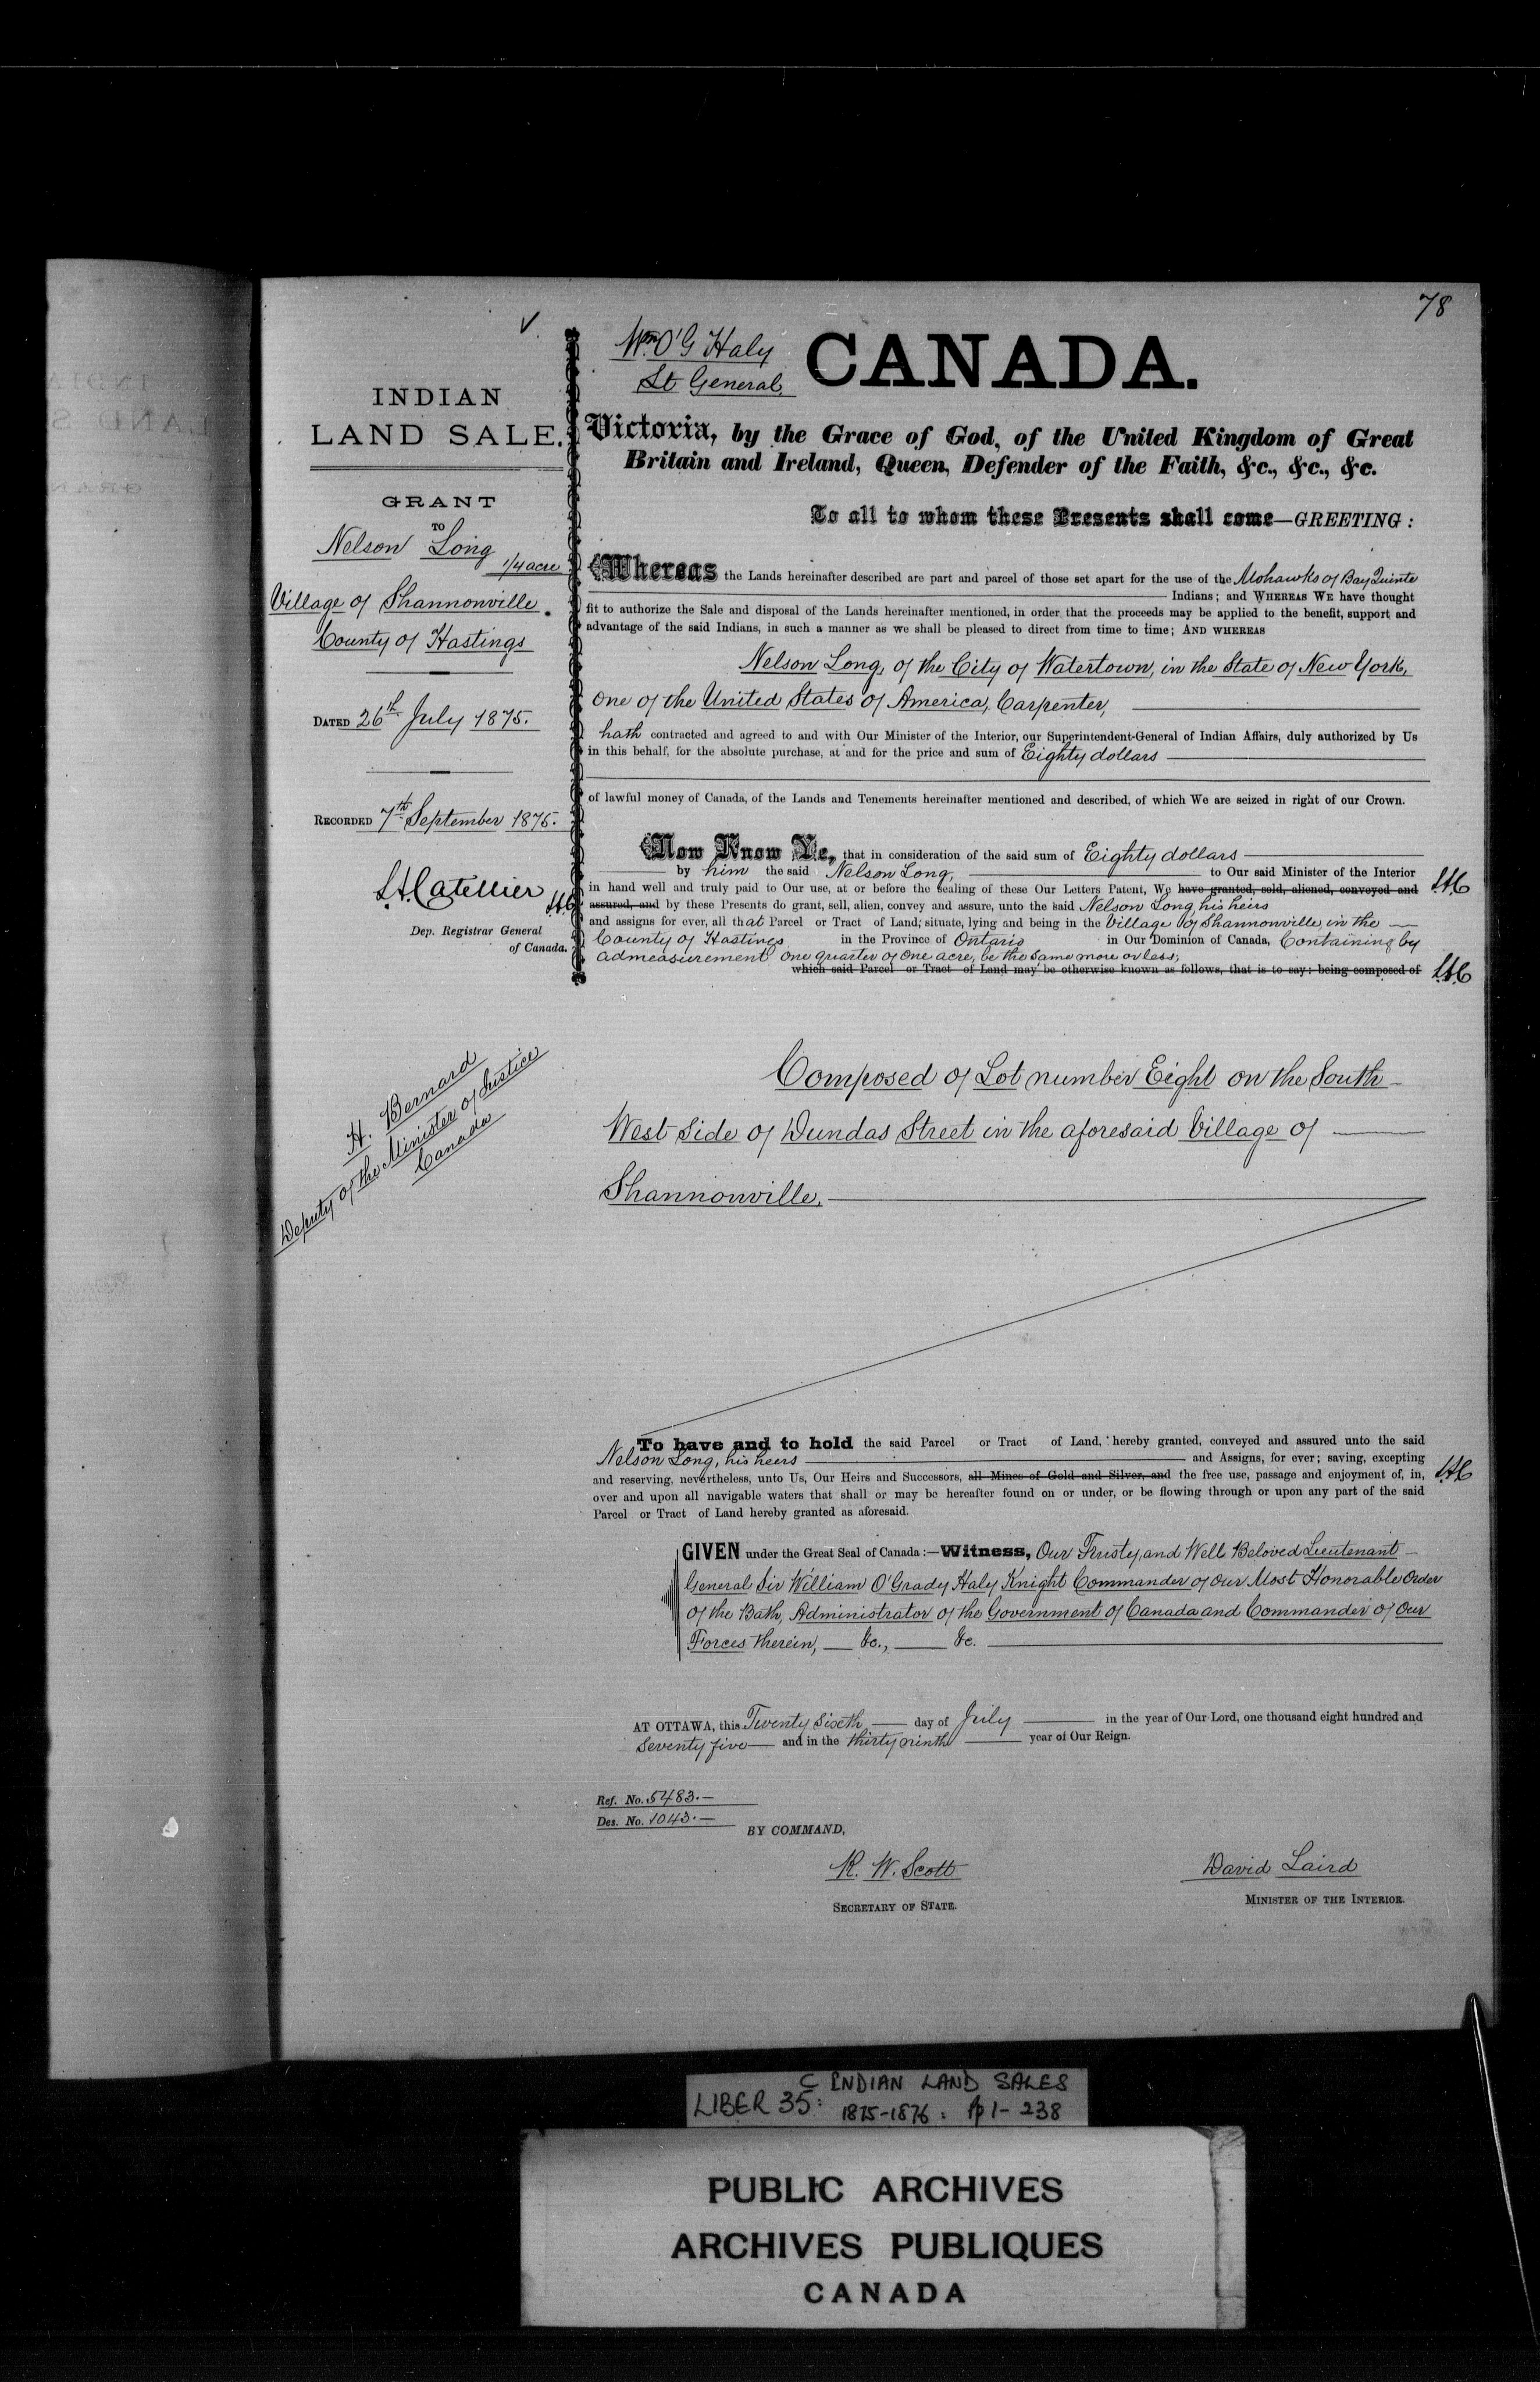 78
✓
INDIAN
LAND SALE.
GRANT
TO
Nelson Long
1/4 acre
Village of Shannonville.
County of Hastings
DATED 26th July 1875.
RECORDED 7th September 1875.
L.A. Catellier
Dep. Registrar General
of Canada.
H. Bernard
Deputy of the Minister of Justice
Canada
Wm O'G Haly
Lt General.
CANADA.
Victoria, by the Grace of God, of the United Kingdom of Great
Britain and Ireland, Queen, Defender of the Faith, &c., &c., &c.
To all to whom these Presents shall come—GREETING :
Whereas the Lands hereinafter described are part and parcel of those set apart for the use of the Mohawks of Bay Quinte
Indians; and WHEREAS WE have thought
fit to authorize the Sale and disposal of the Lands hereinafter mentioned, in order that the proceeds may be applied to the benefit, support and
advantage of the said Indians, in such a manner as we shall be pleased to direct from time to time; AND WHEREAS
Nelson Long, of the City of Watertown, in the State of New York,
one of the United States of America, Carpenter,
hath contracted and agreed to and with Our Minister of the Interior, our Superintendent-General of Indian Affairs, duly authorized by Us
in this behalf, for the absolute purchase, at and for the price and sum of Eighty dollars
of lawful money of Canada, of the Lands and Tenements hereinafter mentioned and described, of which We are seized in right of our Crown.
Now Know Ye, that in consideration of the said sum of Eighty dollars
by him the said Nelson Long, to Our said Minister of the Interior
in hand well and truly paid to Our use, at or before the sealing of these Our Letters Patent, We have granted, sold, aliened, conveyed and LAC
LAC assured, and by these Presents do grant, sell, alien, convey and assure, unto the said Nelson Long, his heirs
and assigns for ever, all that Parcel or Tract of Land, situate, lying and being in the Village of Shannonville, in the
County of Hastings in the Province of Ontario in Our Dominion of Canada, Containing by
admeasurement one quarter of one acre, be the same more or less;
which said Parcel or Tract of Land may be otherwise known as follows, that is to say: being composed of LAC
Composed of Lot number Eight on the South
West side of Dundas Street in the aforesaid Village of
Shannonville,
To have and to hold the said Parcel or Tract of Land, hereby granted, conveyed and assured unto the said
Nelson Long, his heirs and Assigns, for ever; saving, excepting
and reserving, nevertheless, unto Us, Our Heirs and Successors, all Mines of Gold and Silver, and the free use, passage and enjoyment of, in, LAC
over and upon all navigable waters that shall or may be hereafter found on or under, or be flowing through or upon any part of the said
Parcel or Tract of Land hereby granted as aforesaid.
GIVEN under the Great Seal of Canada:—Witness, Our Trusty, and Well Beloved Lieutenant
General Sir William O'Grady Haly Knight Commander of Our Most Honorable Order
of the Bath, Administrator of the Government of Canada and Commander of Our
Forces therein, &c., &c.
AT OTTAWA, this Twenty sixth day of July in the year of Our Lord, one thousand eight hundred and
Seventy five and in the thirty ninth year of Our Reign.
Ref. No. 5483.—
Des. No. 1043.—
BY COMMAND,
R. W. Scott
SECRETARY OF STATE.
David Laird
MINISTER OF THE INTERIOR.
C INDIAN LAND SALES
LIBER 35: 1875-1876: pp 1-238
PUBLIC ARCHIVES
ARCHIVES PUBLIQUES
CANADA